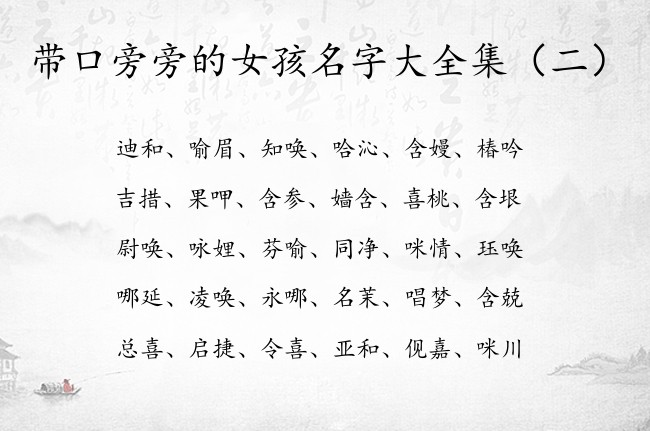 带口旁旁的女孩名字大全集（二）
迪和、喻眉、知唤、哈沁、含嫚、椿吟
吉措、果呷、含参、嫱含、喜桃、含垠
尉唤、咏娌、芬喻、同净、咪情、珏唤
哪延、凌唤、永哪、名茉、唱梦、含兢
总喜、启捷、令喜、亚和、伣嘉、咪川